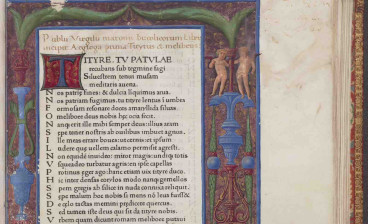 Publii Virgilii maronis bucolicorum Liber
incipit Aegloga prima Tityrus & melibeus
TITYRE. TV PATVLAE
recubans sub tegmine fagi
Siluestrem tenui musam
meditaris auena.
Nos patriae fines: & dulcia liquimus arua.
Nos patriam fugimus. tu tityre lentus i umbra
Formosam resonare doces amaryllida siluas.
O meliboee deus nobis hec ocia fecit.
Nanq erit ille mihi semper deus: illius aram
Saepe tener nostris ab ouilibus imbuet agnus.
Ille meas errare boues: ut cernis: et ipsum
Ludere que uellem calamo permisit agresti.
Non equidem inuideo: miror magis: undiq totis
Vsqueadeo turbatur agris: en ipse capellas
Protinus eger ago: hanc etiam uix tityre duco.
Hic inter densas corylos modo nanq gemellos
Spem gregis ah silice in nuda connixa reliquit.
Saepe malum hoc nobis si mens non leua fuisset
De coelo tactas memini predicere quercus.
Sed tamen iste deus qui sit da tityre nobis.
Vrbem quam dicunt romam meliboee putaui